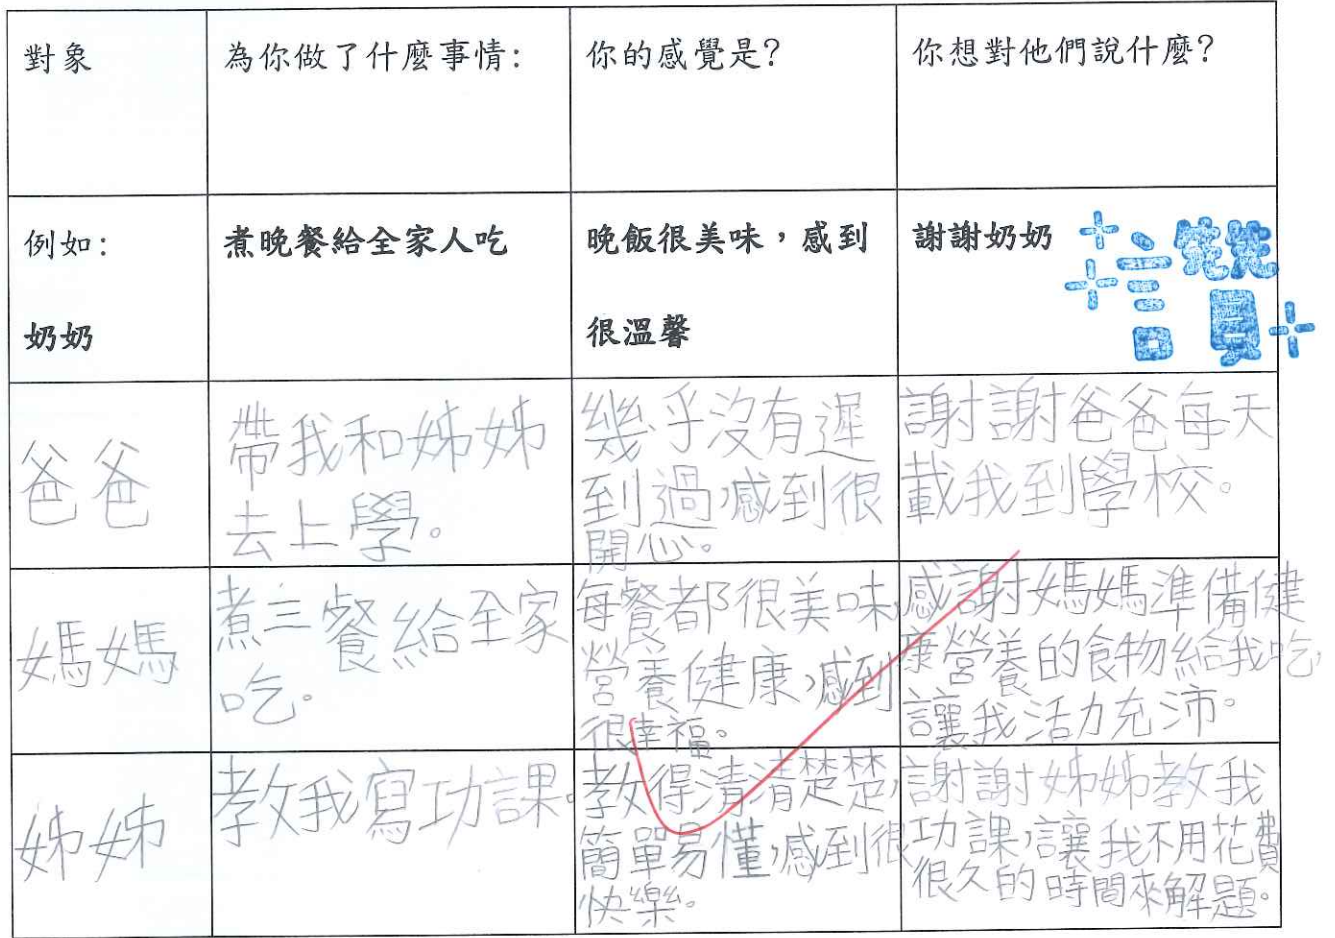 對象
為你做了什麼事情:
你的感覺是?
你想對他們說什麼?
例如:
奶奶
煮晚餐給全家人吃
晚飯很美味，感到
很溫馨
謝謝奶奶
讚
爸爸
帶我和姊姊
去上學。
幾乎沒有遲
到過,感到很
開心。
謝謝爸爸每天
載我到學校。
媽媽
煮三餐給全家
吃。
每餐都很美味,
營養健康,感到
很幸福。
感謝媽媽準備健
康營養的食物給我吃,
讓我活力充沛。
姊姊
教我寫功課。
教得清清楚楚,
簡單易懂,感到很
快樂。
謝謝姊姊教我
功課,讓我不用花費
很久的時間來解題。